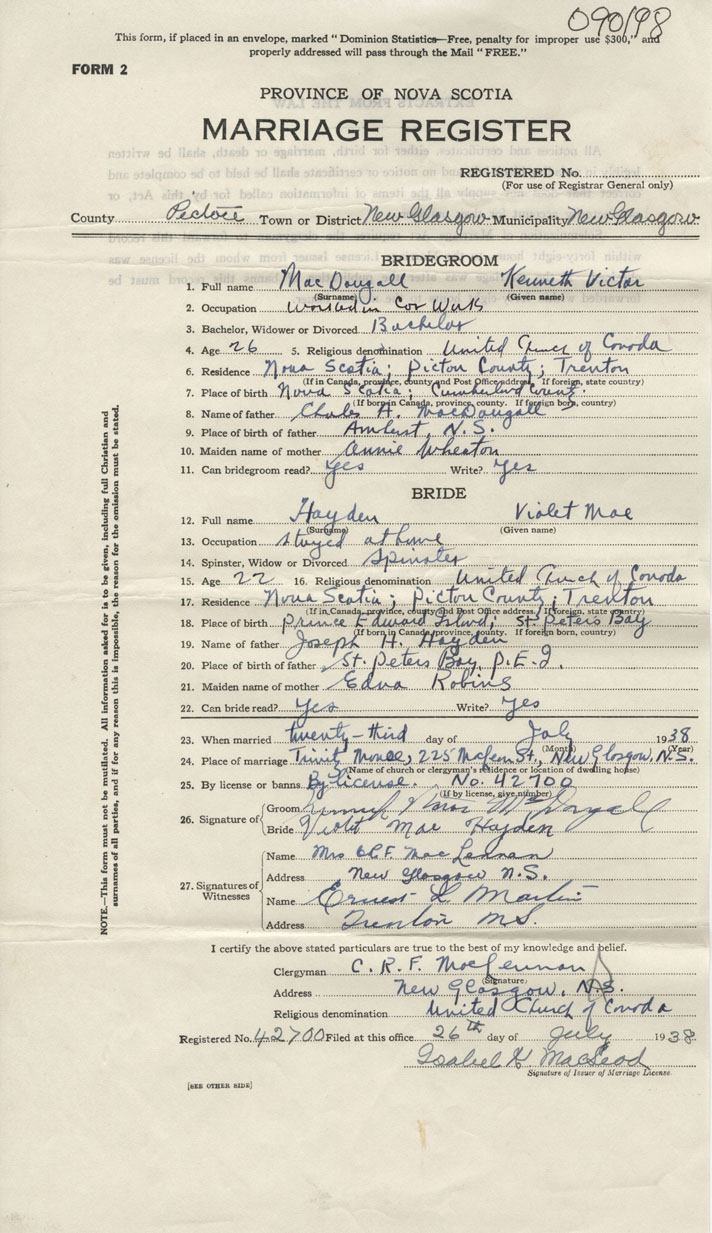 090198
This form, if placed in an envelope, marked "Dominion Statistics—Free, penalty for improper use $300," and
properly addressed will pass through the Mail "FREE."
FORM 2
PROVINCE OF NOVA SCOTIA
MARRIAGE REGISTER
REGISTERED No.
(For use of Registrar General only)
County Pictou Town or District New Glasgow Municipality New Glasgow
BRIDEGROOM
1. Full name MacDougall Kenneth Victor
(Surname) (Given name)
2. Occupation worked in Car Works
3. Bachelor, Widower or Divorced Bachelor
4. Age 26 5. Religious denomination United Church of Canada
6. Residence Nova Scotia; Pictou County; Trenton
(If in Canada, province, county and Post Office address. If foreign, state country)
7. Place of birth Nova Scotia; Cumberland County.
(If born in Canada, province, county. If foreign born, country)
8. Name of father Charles H. MacDougall
9. Place of birth of father Amherst, N.S.
10. Maiden name of mother Annie Wheaton
11. Can bridegroom read? Yes Write? Yes
BRIDE
12. Full name Hayden Violet Mae
(Surname) (Given name)
13. Occupation stayed at home
14. Spinster, Widow or Divorced Spinster
15. Age 22 16. Religious denomination United Church of Canada
17. Residence Nova Scotia; Pictou County; Trenton
(If in Canada, province, county and Post Office address, If foreign, state country)
18. Place of birth Prince Edward Island; St Peters Bay
(If born in Canada, province, county. If foreign born, country)
19. Name of father Joseph H. Hayden
20. Place of birth of father St. Peters Bay, P.E.I.
21. Maiden name of mother Edna Robins
22. Can bride read? Yes Write? Yes
23. When married twenty-third day of July 1938
(Month) (Year)
24. Place of marriage 225 St., New Glasgow, N.S.
(Name of church or clergyman's residence or location of dwelling house)
25. By license or banns By license. No. 42700
(If by license, give number)
26. Signature of
Groom Kenneth Victor MacDougall
Bride Violet Mae Hayden
27. Signatures of Witnesses
Name Mrs C.R.F. MacLennan
Address New Glasgow N.S.
Name Ernest L Martin
Address Trenton N.S.
I certify the above stated particulars are true to the best of my knowledge and belief.
Clergyman C. R. F. MacLennan
(Signature)
Address New Glasgow, N.S.
Religious denomination United Church of Canada
Registered No. 42700 Filed at this office 26th day of July 1938
Isabel H MacLeod
Signature of Issuer of Marriage License.
[SEE OTHER SIDE]
NOTE.—This form must not be mutilated. All information asked for is to be given, including full Christian and
surnames of all parties, and if for any reason this is impossible, the reason for the omission must be stated.